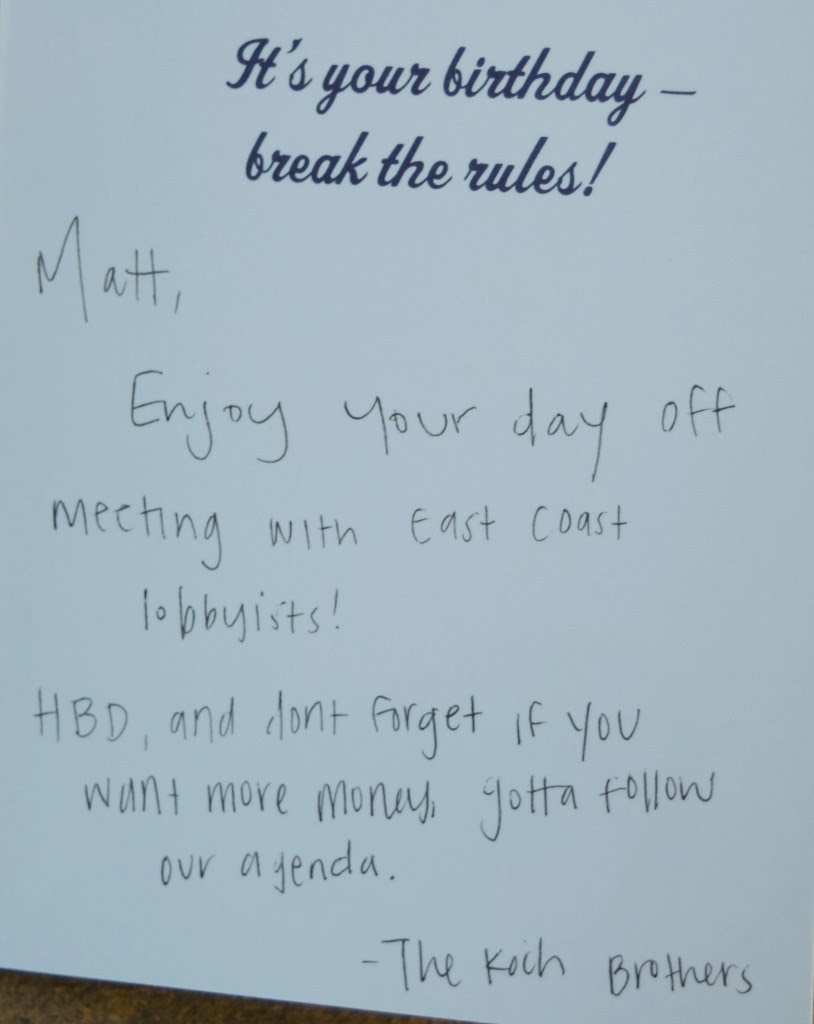 It's your birthday –
break the rules!
Matt,
Enjoy your day off
meeting with East Coast
lobbyists!
HBD, and dont forget if you
want more money, gotta follow
our agenda.
- The Koch Brothers